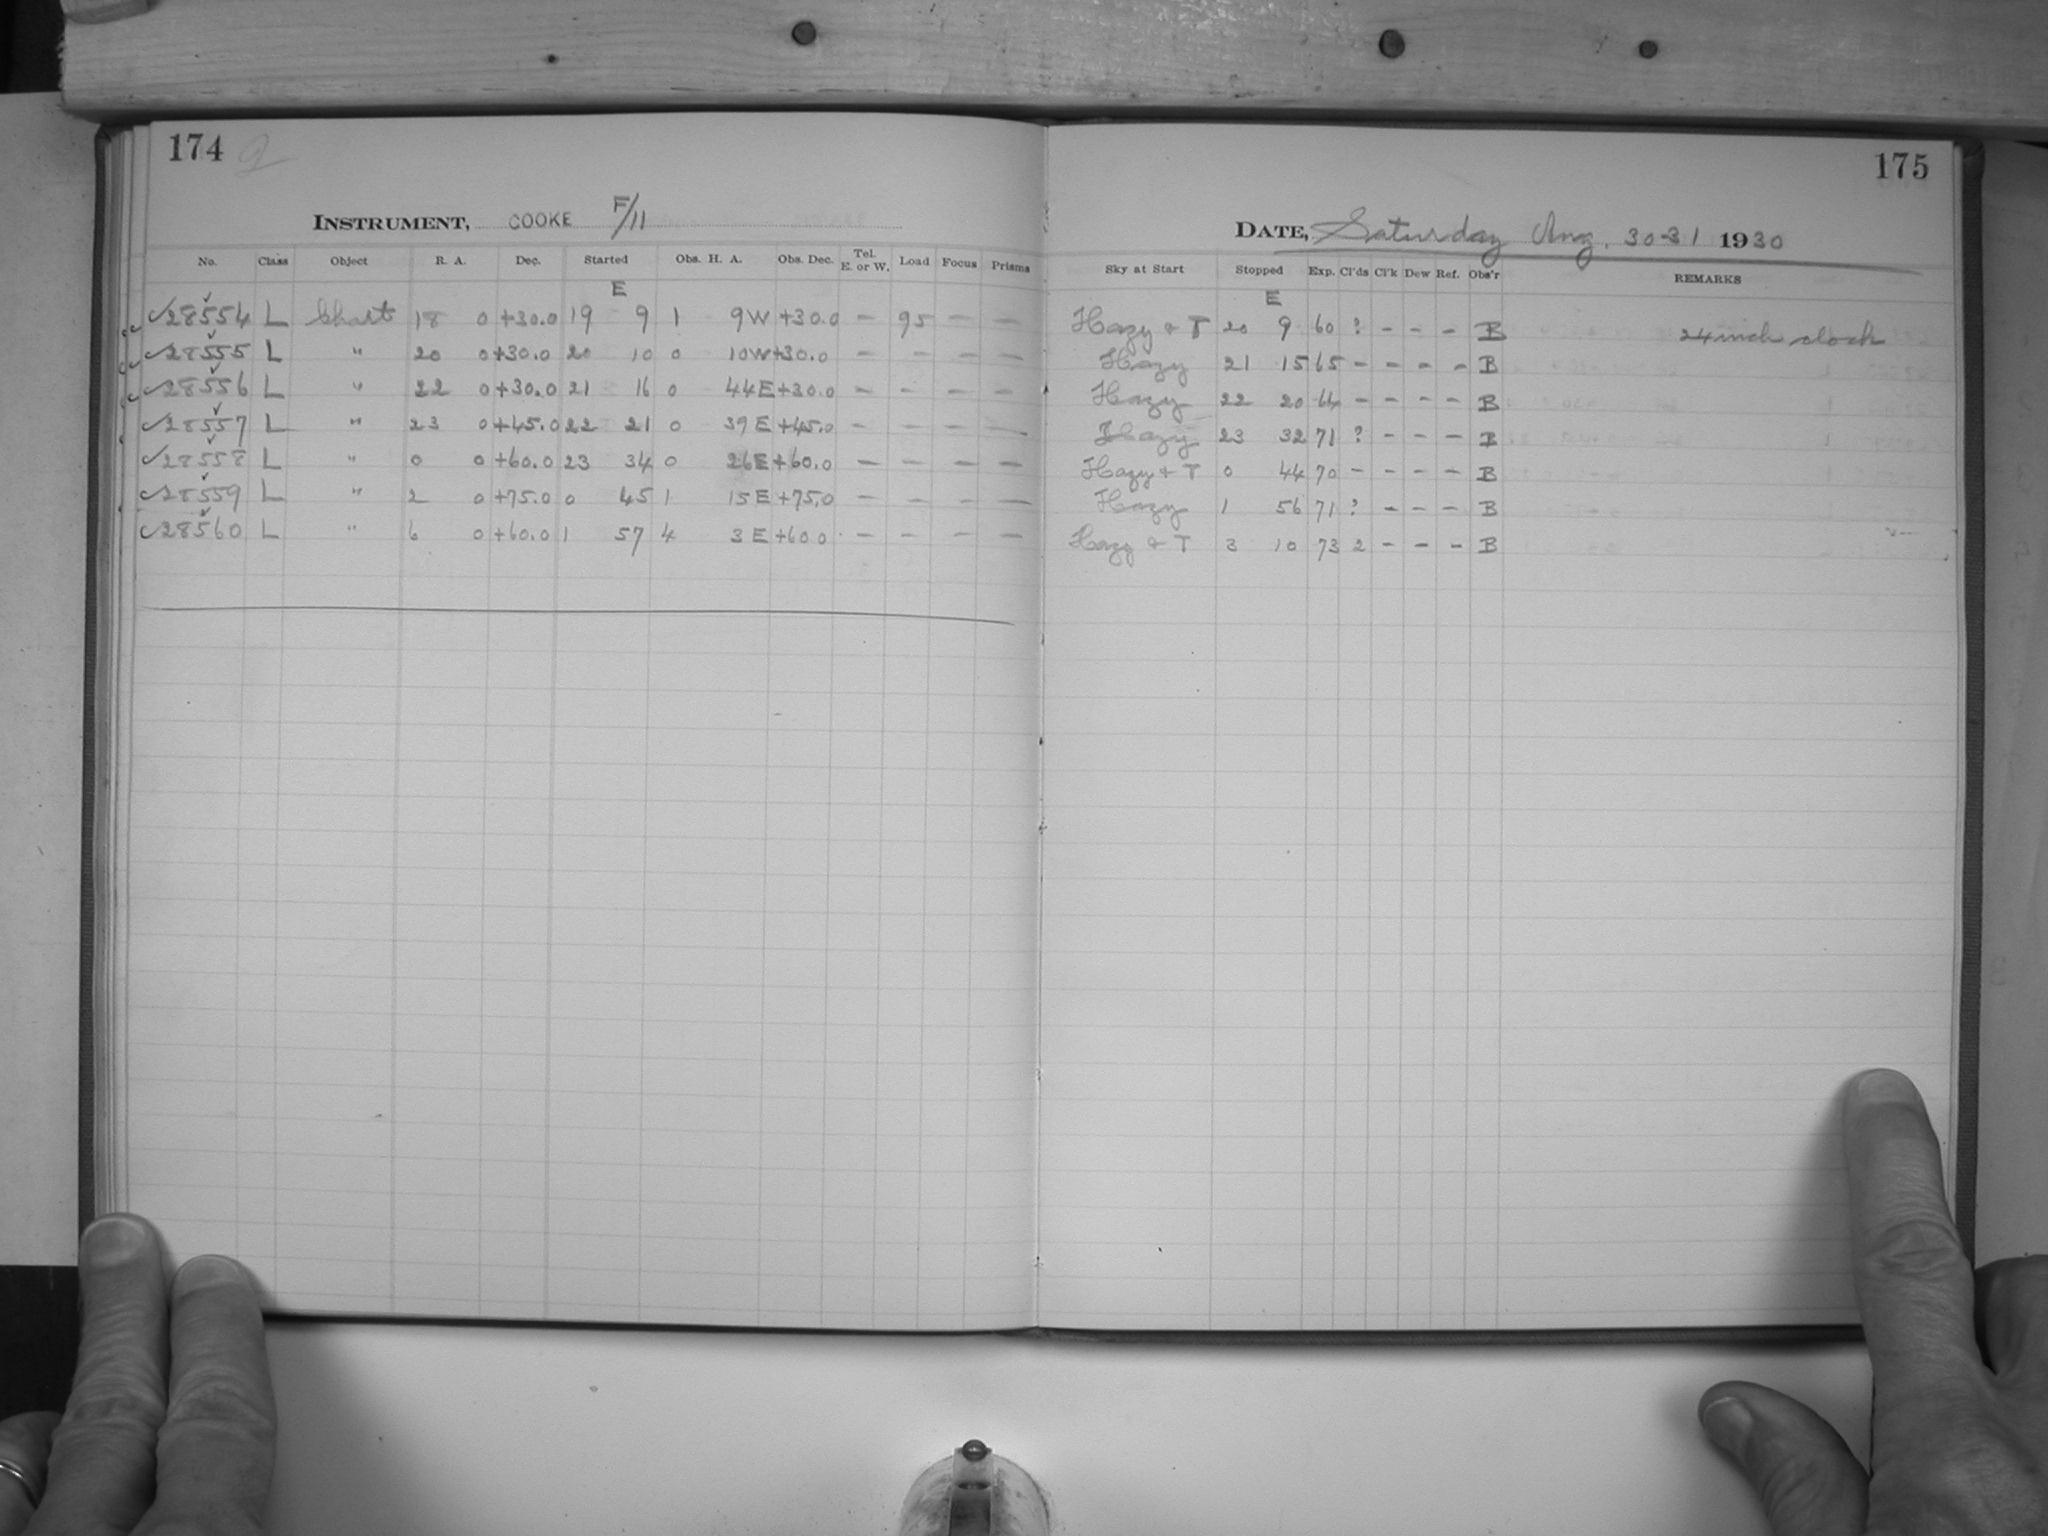 174
INSTRUMENT, COOKE F/11
No. Class Object R. A. Dec. Started Obs. H. A. Obs. Dec. Tel. E. or W. Load Focus Prisms
E
28554 L Chart 18 0 +30.0 19 9 1 9W +30.0 — 95 — —
28555 L " 20 0 +30.0 20 10 0 10W +30.0 — — — —
28556 L " 22 0 +30.0 21 16 0 44E +30.0 — — — —
28557 L " 23 0 +45.0 22 21 0 39E +45.0 — — — —
28558 L " 0 0 +60.0 23 34 0 26E +60.0 — — — —
28559 L " 2 0 +75.0 0 45 1 15E +75.0 — — — —
28560 L " 6 0 +60.0 1 57 4 3E +60.0 — — — —
175
DATE, Saturday Aug. 30-31 1930
Sky at Start Stopped Exp. Cl'ds Cl'k Dew Ref. Obs'r REMARKS
E
Hazy & T 20 9 60 ? - - - B 24 inch clock
Hazy 21 15 65 - - - - B
Hazy 22 20 64 - - - - B
Hazy 23 32 71 ? - - - B
Hazy & T 0 44 70 - - - - B
Hazy 1 56 71 ? - - - B
Hazy & T 3 10 73 2 - - - B